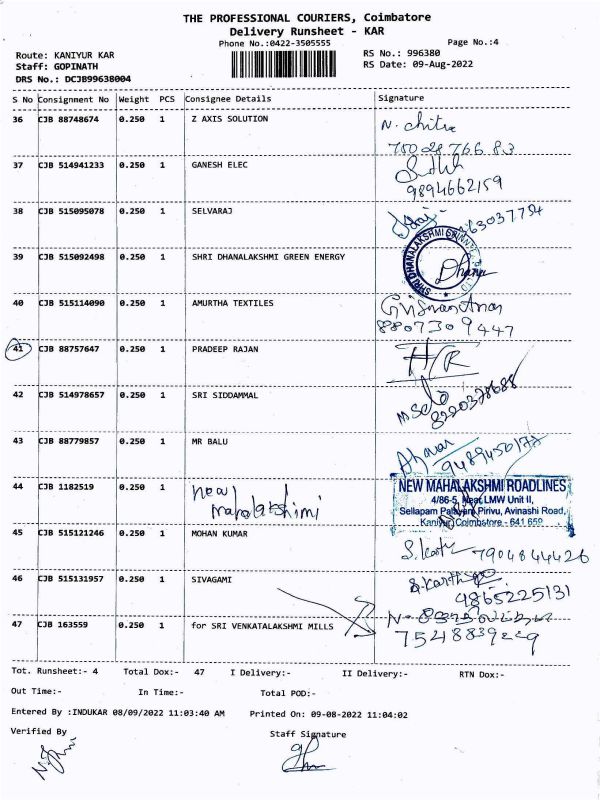 THE PROFESSIONAL COURIERS, Coimbatore
Delivery Runsheet - KAR
Phone No.:0422-3505555 Page No.:4
Route: KANIYUR KAR RS No.: 996380
Staff: GOPINATH RS Date: 09-Aug-2022
DRS No.: DCJB99638004
S No Consignment No Weight PCS Consignee Details Signature
36 CJB 88748674 0.250 1 Z AXIS SOLUTION N. chitra
75028 766 83
37 CJB 514941233 0.250 1 GANESH ELEC
9894662159
38 CJB 515095078 0.250 1 SELVARAJ
39 CJB 515092498 0.250 1 SHRI DHANALAKSHMI GREEN ENERGY Dhana
SHRI DHANALAKSHMI
40 CJB 515114090 0.250 1 AMURTHA TEXTILES
8807309447
41 CJB 88757647 0.250 1 PRADEEP RAJAN H/R
42 CJB 514978657 0.250 1 SRI SIDDAMMAL
8220378688
43 CJB 88779857 0.250 1 MR BALU
9489450177
44 CJB 1182519 0.250 1 new
mahalakshimi
NEW MAHALAKSHMI ROADLINES
4/86-5, Near LMW Unit II,
Sellapam Palayam Pirivu, Avinashi Road,
Kaniyur Coimbatore - 641 659
45 CJB 515121246 0.250 1 MOHAN KUMAR 7904844426
46 CJB 515131957 0.250 1 SIVAGAMI S.Karthi
4865225131
47 CJB 163559 0.250 1 for SRI VENKATALAKSHMI MILLS
Tot. Runsheet:- 4 Total Dox:- 47 I Delivery:- II Delivery:- RTN Dox:-
Out Time:- In Time:- Total POD:-
Entered By :INDUKAR 08/09/2022 11:03:40 AM Printed On: 09-08-2022 11:04:02
Verified By Staff Signature